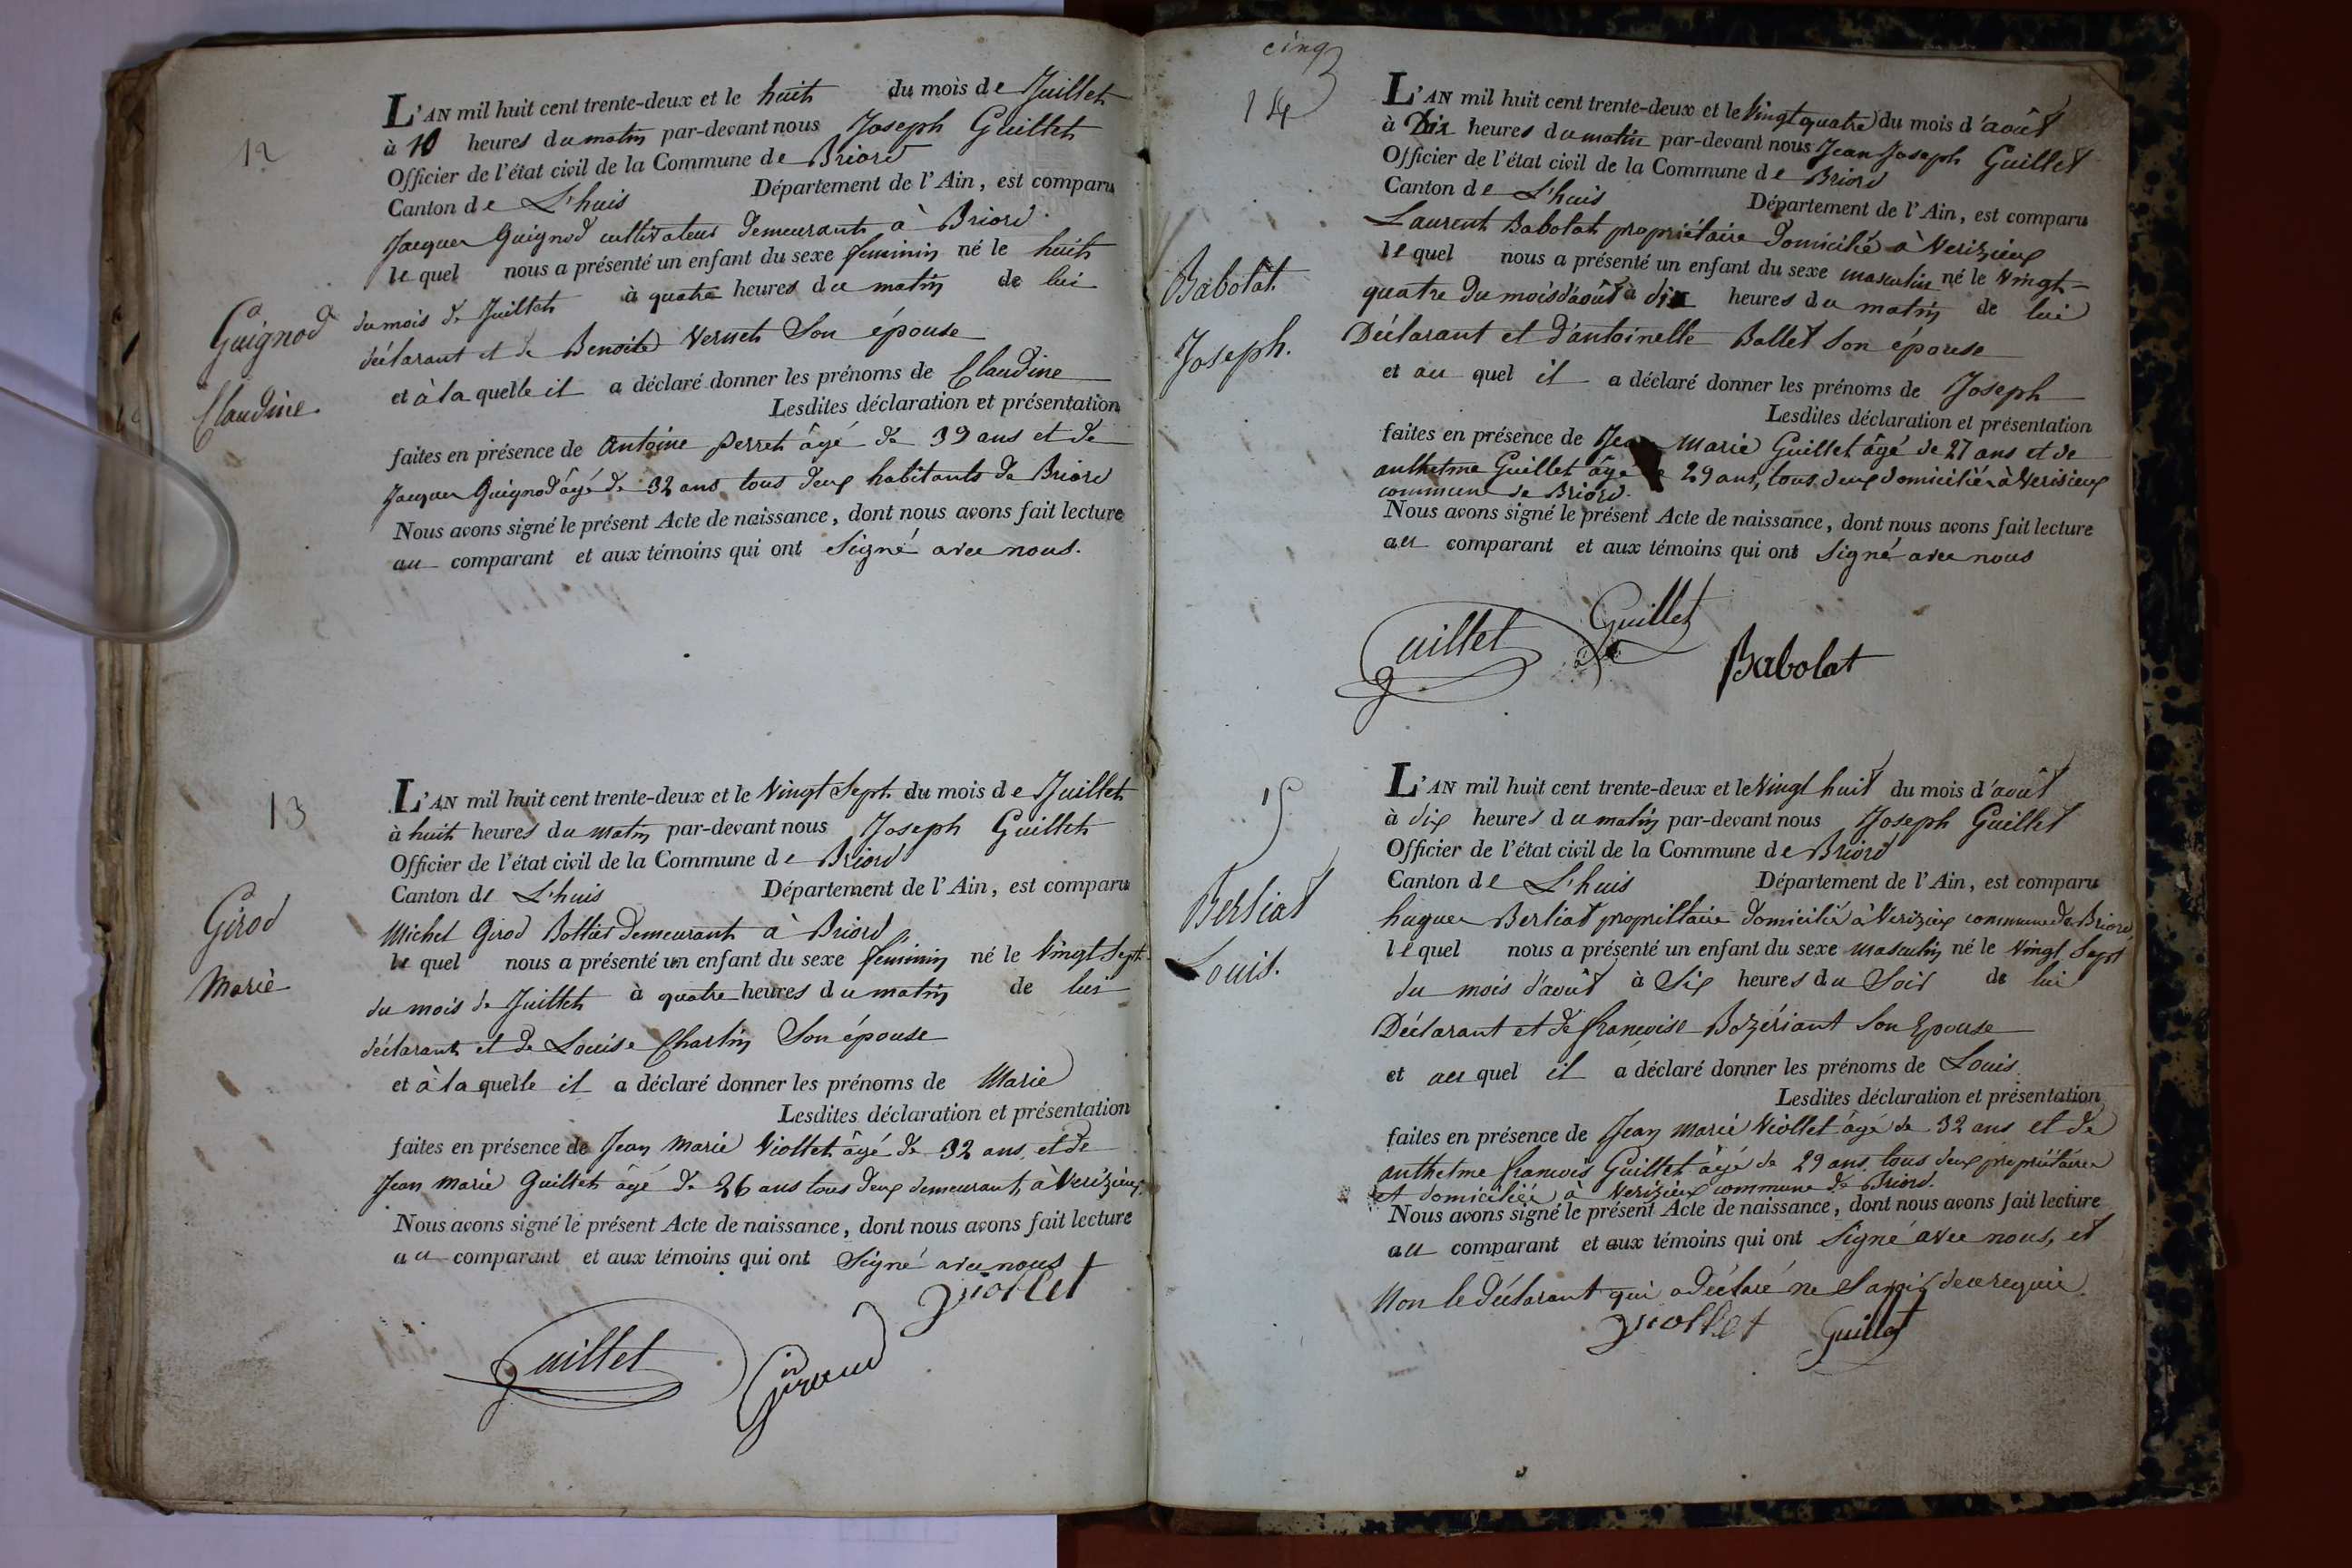 12
Guignod
Claudine.
L'AN mil huit cent trente-deux et le huit du mois de Juillet
à 10 heures du matin par-devant nous Joseph Guillet
Officier de l'état civil de la Commune de Briord
Canton de L'huis Département de l'Ain, est comparu
Jacques Guignod cultivateur demeurant à Briord
lequel nous a présenté un enfant du sexe feminin né le huit
du mois de Juillet à quatre heures du matin de lui
déclarant et de Benoite Vernet Son épouse
et à laquelle il a déclaré donner les prénoms de Claudine
Lesdites déclaration et présentation
faites en présence de Antoine perret âgé de 39 ans et de
Jacques Guignod âgé de 32 ans tous deux habitants de Briord
Nous avons signé le présent Acte de naissance, dont nous avons fait lecture
au comparant et aux témoins qui ont Signé avec nous.
13
Girod
Marie
L'AN mil huit cent trente-deux et le Vingt Sept du mois de Juillet
à huit heures du matin par-devant nous Joseph Guillet
Officier de l'état civil de la Commune de Briord
Canton de L'huis Département de l'Ain, est comparu
Michel Girod Bottier demeurant à Briord
lequel nous a présenté un enfant du sexe feminin né le Vingt Sept
du mois de Juillet à quatre heures du matin de lui
déclarant et de Louise Charlin Son épouse
et à laquelle il a déclaré donner les prénoms de Marie
Lesdites déclaration et présentation
faites en présence de Jean Marie Viollet âgé de 32 ans et de
Jean Marie Guillet âgé de 26 ans tous deux demeurant à Verizieux.
Nous avons signé le présent Acte de naissance, dont nous avons fait lecture
au comparant et aux témoins qui ont Signé avec nous
Viollet
Guillet
cinq
14
Babolat
Joseph.
L'AN mil huit cent trente-deux et le Vingt quatre du mois d'août
à Dix heures du matin par-devant nous Jean Joseph Guillet
Officier de l'état civil de la Commune de Briord
Canton de L'huis Département de l'Ain, est comparu
Laurent Babolat propriétaire domicilié à Verizieux
lequel nous a présenté un enfant du sexe masculin né le Vingt-
quatre du mois d'août à dix heures du matin de lui
Déclarant et d'antoinette Ballet son épouse
et au quel il a déclaré donner les prénoms de Joseph
Lesdites déclaration et présentation
faites en présence de Jean Marie Guillet âgé de 27 ans et de
anthelme Guillet âgé de 29 ans, tous deux domiciliés à Verisieux
commune de Briord.
Nous avons signé le présent Acte de naissance, dont nous avons fait lecture
au comparant et aux témoins qui ont Signé avec nous
Guillet Guillet
Babolat
15
Berliat
Louis.
L'AN mil huit cent trente-deux et le Vingt huit du mois d'août
à dix heures du matin par-devant nous Joseph Guillet
Officier de l'état civil de la Commune de Briord
Canton de L'huis Département de l'Ain, est comparu
hugues Berliat propriétaire domicilié à Verizieux commune de Briord,
lequel nous a présenté un enfant du sexe masculin né le Vingt Sept
du mois d'août à Six heures du Soir de lui
Déclarant et de francoise Bozériant Son Epouse
et au quel il a déclaré donner les prénoms de Louis.
Lesdites déclaration et présentation
faites en présence de Jean Marie Viollet âgé de 32 ans et de
anthelme francois Guillet âgé de 29 ans, tous deux propriétaires
et domiciliés à Verizieux commune de Briord.
Nous avons signé le présent Acte de naissance, dont nous avons fait lecture
au comparant et aux témoins qui ont Signé avec nous, et
Non le déclarant qui a déclaré ne Savoir de ce requis.
Viollet Guillet